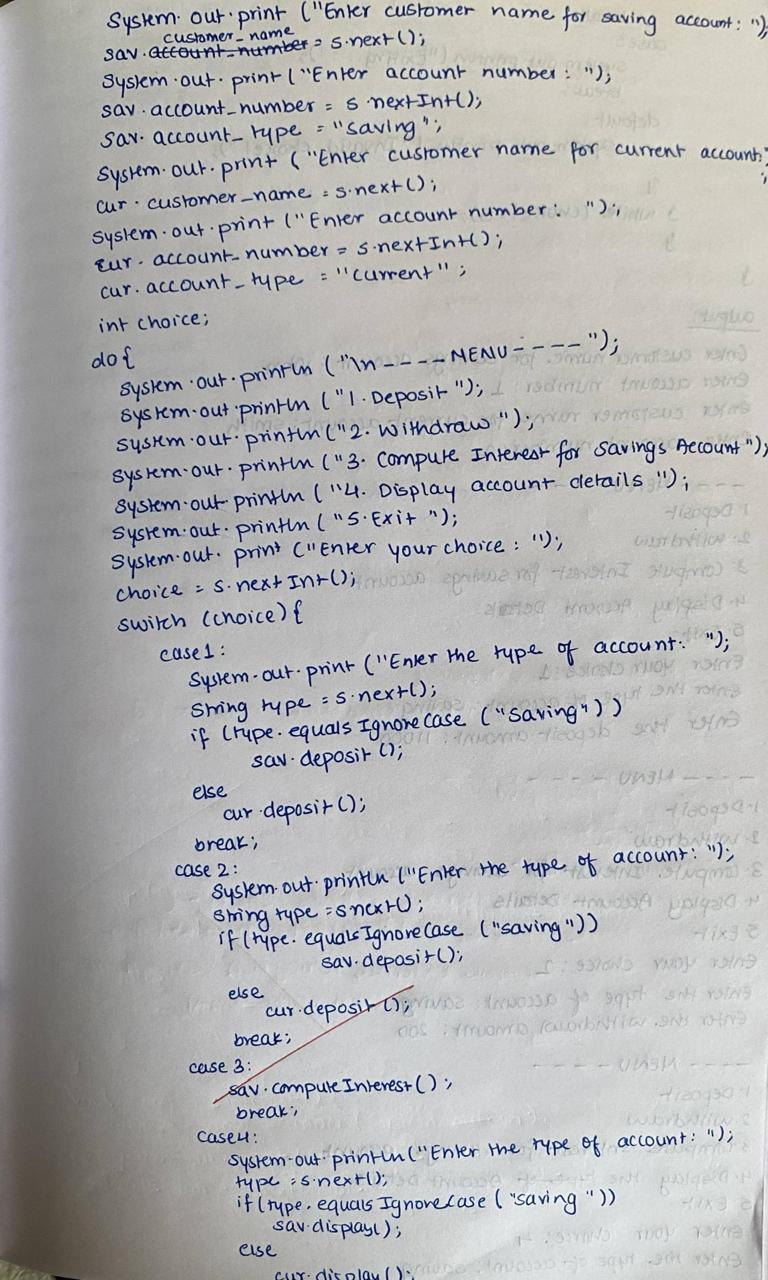 System.out.print ("Enter customer name for saving account: ");
customer_name
sav.account_number = s.next();
System.out.print ("Enter account number: ");
sav.account_number = s.nextInt();
sav.account_type = "saving";
System.out.print ("Enter customer name for current account:"
;
cur.customer_name = s.next();
System.out.print ("Enter account number: ");
cur.account_number = s.nextInt();
cur.account_type = "current";
int choice;
do{
System.out.println ("\n----MENU----");
System.out.println ("1. Deposit");
System.out.println ("2. Withdraw");
System.out.println ("3. Compute Interest for Savings Account");
System.out println ("4. Display account details");
System.out.println ("5.Exit");
System.out.print ("Enter your choice: ");
choice = s.nextInt();
switch (choice){
case1:
System.out.print ("Enter the type of account: ");
String type = s.next();
if (type.equalsIgnoreCase ("Saving"))
sav.deposit();
else
cur.deposit();
break;
case 2:
System.out.println ("Enter the type of account: ");
String type = s next();
if(type.equalsIgnoreCase ("saving"))
sav.deposit();
else
cur.deposit();
break;
case 3:
sav.computeInterest();
break;
case4:
System.out.println("Enter the type of account: ");
type = s.next();
if(type.equalsIgnoreCase ("saving"))
sav.display();
else
cur.display();